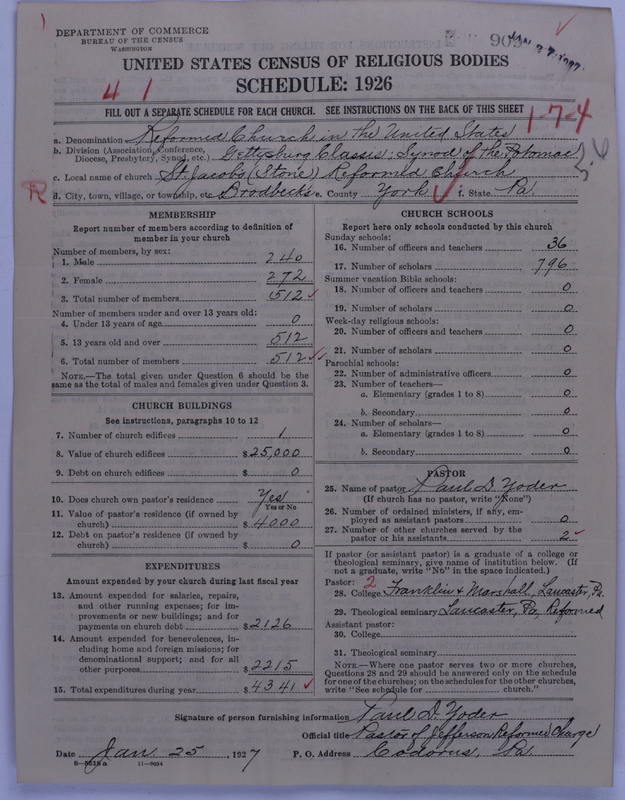 DEPARTMENT OF COMMERCE
BUREAU OF THE CENSUS
WASHINGTON
909
UNITED STATES CENSUS OF RELIGIOUS BODIES
SCHEDULE: 1926
4 1
FILL OUT A SEPARATE SCHEDULE FOR EACH CHURCH. SEE INSTRUCTIONS ON THE BACK OF THIS SHEET
1-7-4
a. Denomination Reformed Church in the United States
b. Division (Association, Conference, Diocese, Presbytery, Synod, etc.) Gettysburg Classis; Synod of the Potomac
c. Local name of church St. Jacobs (Stone) Reformed Church
R d. City, town, village, or township, etc. Brodbecks e. County York f. State Pa.
MEMBERSHIP
Report number of members according to definition of
member in your church
Number of members, by sex:
1. Male 240
2. Female 272
3. Total number of members 512
Number of members under and over 13 years old:
4. Under 13 years of age 0
5. 13 years old and over 512
6. Total number of members 512
NOTE.—The total given under Question 6 should be
same as the total of males and females given under Question 3.
CHURCH BUILDINGS
See instructions, paragraphs 10 to 12
7. Number of church edifices 1
8. Value of church edifices $25,000
9. Debt on church edifices $0
10. Does church own pastor's residence Yes
Yes or No
11. Value of pastor's residence (if owned by
church) $4000
12. Debt on pastor's residence (if owned by
church) $0
EXPENDITURES
Amount expended by your church during last fiscal year
13. Amount expended for salaries, repairs,
and other running expenses; for im-
provements or new buildings; and for
payments on church debt $2126
14. Amount expended for benevolences, in-
cluding home and foreign missions; for
denominational support; and for all
other purposes $2215
15. Total expenditures during year $4341
CHURCH SCHOOLS
Report here only schools conducted by this church
Sunday schools:
16. Number of officers and teachers 36
17. Number of scholars 796
Summer vacation Bible schools:
18. Number of officers and teachers 0
19. Number of scholars 0
Week-day religious schools:
20. Number of officers and teachers 0
21. Number of scholars 0
Parochial schools:
22. Number of administrative officers 0
23. Number of teachers—
a. Elementary (grades 1 to 8) 0
b. Secondary 0
24. Number of scholars—
a. Elementary (grades 1 to 8) 0
b. Secondary 0
PASTOR
25. Name of pastor Paul D. Yoder
(If church has no pastor, write "None")
26. Number of ordained ministers, if any, em-
ployed as assistant pastors 0
27. Number of other churches served by the
pastor or his assistants 2
If pastor (or assistant pastor) is a graduate of a college or
theological seminary, give name of institution below. (If
not a graduate, write "No" in the space indicated.)
Pastor: 2
28. College Franklin & Marshall, Lancaster, Pa.
29. Theological seminary Lancaster, Pa. Reformed
Assistant pastor:
30. College
31. Theological seminary
NOTE.—Where one pastor serves two or more churches,
Questions 28 and 29 should be answered only on the schedule
for one of the churches; on the schedules for the other churches,
write "See schedule for church."
Signature of person furnishing information Paul D. Yoder
Official title Pastor of Jefferson Reformed Charge
Date Jan. 25, 1927 P. O. Address Codorus, Pa.
11—9054